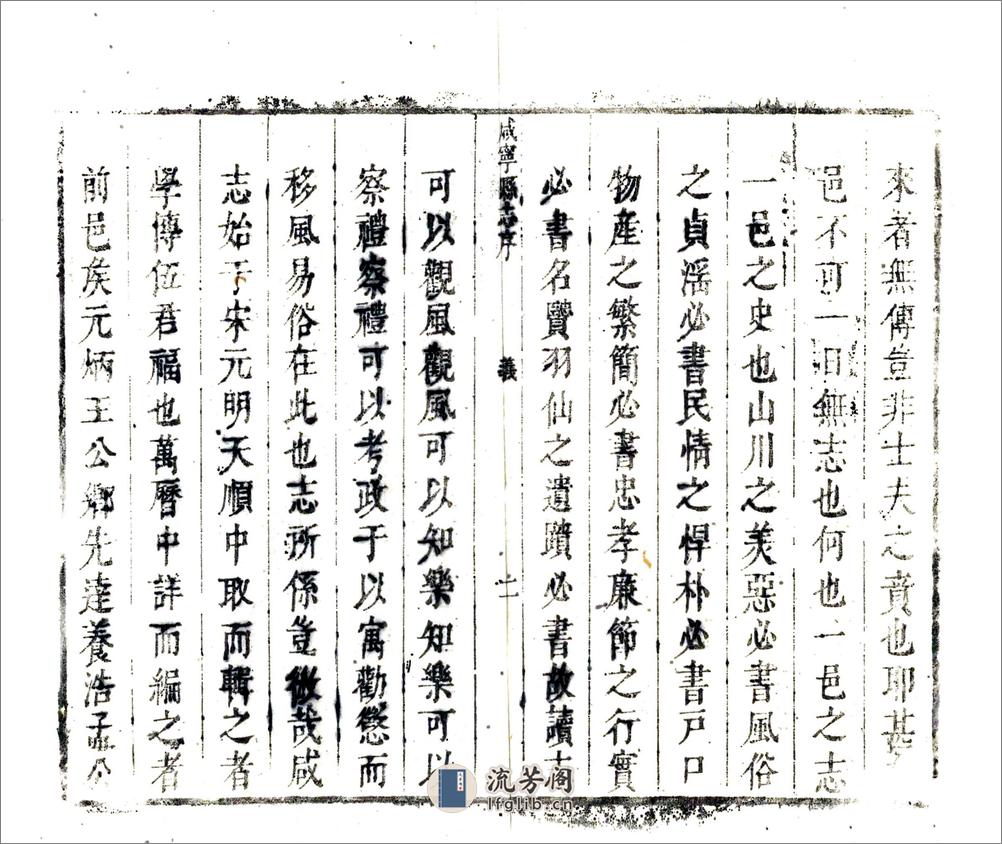 來者無傳豈非士夫之責也耶甚
邑不可一日無志也何也一邑之志
一邑之史也山川之美惡必書風俗
之貞滛必書民情之悍朴必書戸口
物産之繁簡必書忠孝廉節之行實
必書名賢羽仙之遺蹟必書故讀志
咸寧縣志序 義 二
可以觀風觀風可以知樂知樂可以
察禮察禮可以考政于以寓勸懲而
移風易俗在此也志所係豈微哉咸
志始于宋元明天順中取而輯之者
學傳伍君福也萬曆中詳而編之者
前邑矦元炳王公鄉先達養浩孟公
流芳阁
lfglib.cn